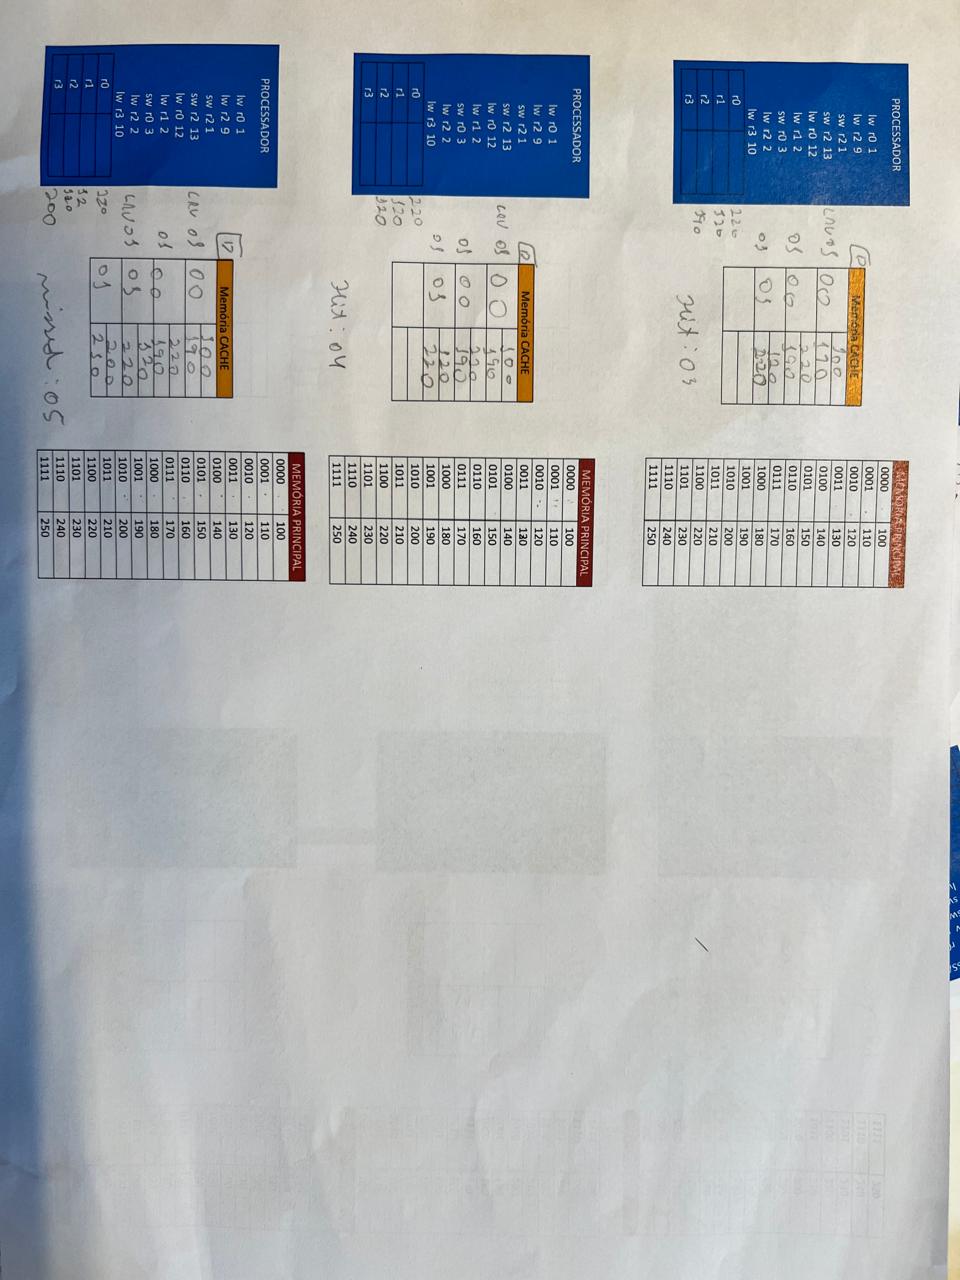 PROCESSADOR
lw r0 1
lw r2 9
sw r2 1
sw r2 13
lw r0 12
lw r1 2
sw r0 3
lw r2 2
lw r3 10
r0 220
r1 120
r2 190
r3
D
Memória CACHE
LRU 01 00 100
190
01 00 220
190
01 01 120
220
Hit: 03
MEMÓRIA PRINCIPAL
0000 100
0001 110
0010 120
0011 130
0100 140
0101 150
0110 160
0111 170
1000 180
1001 190
1010 200
1011 210
1100 220
1101 230
1110 240
1111 250
PROCESSADOR
lw r0 1
lw r2 9
sw r2 1
sw r2 13
lw r0 12
lw r1 2
sw r0 3
lw r2 2
lw r3 10
r0 220
r1 120
r2 120
r3
D
Memória CACHE
LRU 01 00 100
190
01 00 220
190
01 01 120
220
Hit: 04
MEMÓRIA PRINCIPAL
0000 100
0001 110
0010 120
0011 130
0100 140
0101 150
0110 160
0111 170
1000 180
1001 190
1010 200
1011 210
1100 220
1101 230
1110 240
1111 250
PROCESSADOR
lw r0 1
lw r2 9
sw r2 1
sw r2 13
lw r0 12
lw r1 2
sw r0 3
lw r2 2
lw r3 10
r0
r1 12
r2 120
r3 200
D
Memória CACHE
LRU 01 00 100
190
01 00 220
190
LRU 01 01 120
220
01 200
210
missed: 05
MEMÓRIA PRINCIPAL
0000 100
0001 110
0010 120
0011 130
0100 140
0101 150
0110 160
0111 170
1000 180
1001 190
1010 200
1011 210
1100 220
1101 230
1110 240
1111 250